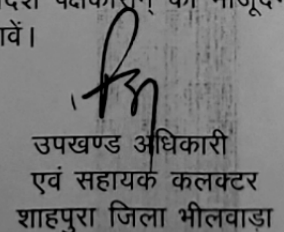 की मौजूद
ावें।
उपखण्ड अधिकारी
एवं सहायक कलक्टर
शाहपुरा जिला भीलवाडा